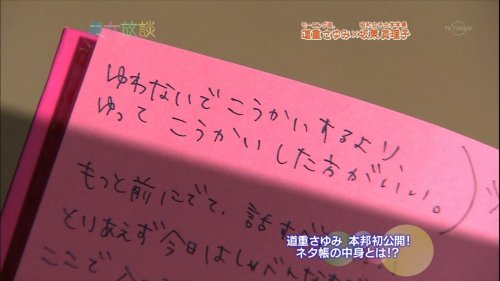 美女放談
モーニング娘。
道重さゆみ×坂東眞理子
TV TOKYO
ゆわないでこうかいするより
ゆって こうかいした方がいい。
もっと前にでて、話すべ
とりあえず今日はしゃべんなきゃ
ここで
道重さゆみ 本邦初公開!
ネタ帳の中身とは!?